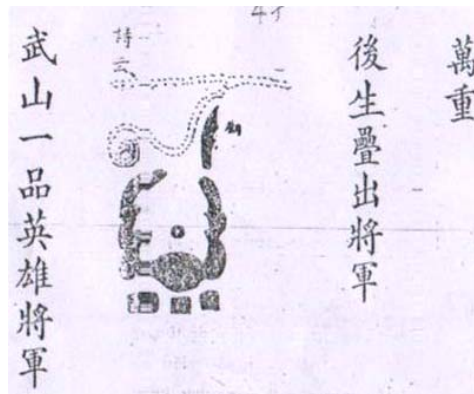 萬重
後生疊出將軍
詩云
武山一品英雄將軍